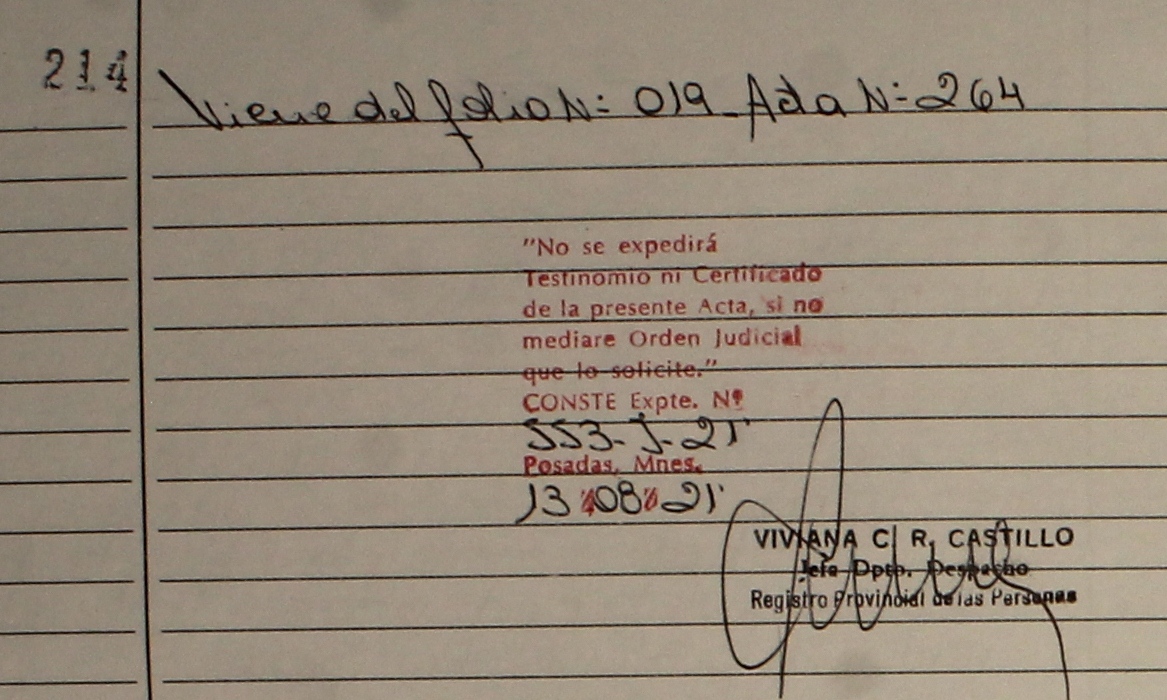 214
Viene del folio N: 019 Acta N: 264
"No se expedirá
Testinomio ni Certificado
de la presente Acta, si no
mediare Orden Judicial
que lo solicite."
CONSTE Expte. Nº
553-J-21
Posadas, Mnes.
13/08/21
VIVIANA C. R. CASTILLO
Jefa Dpto. Despacho
Registro Provincial de las Personas